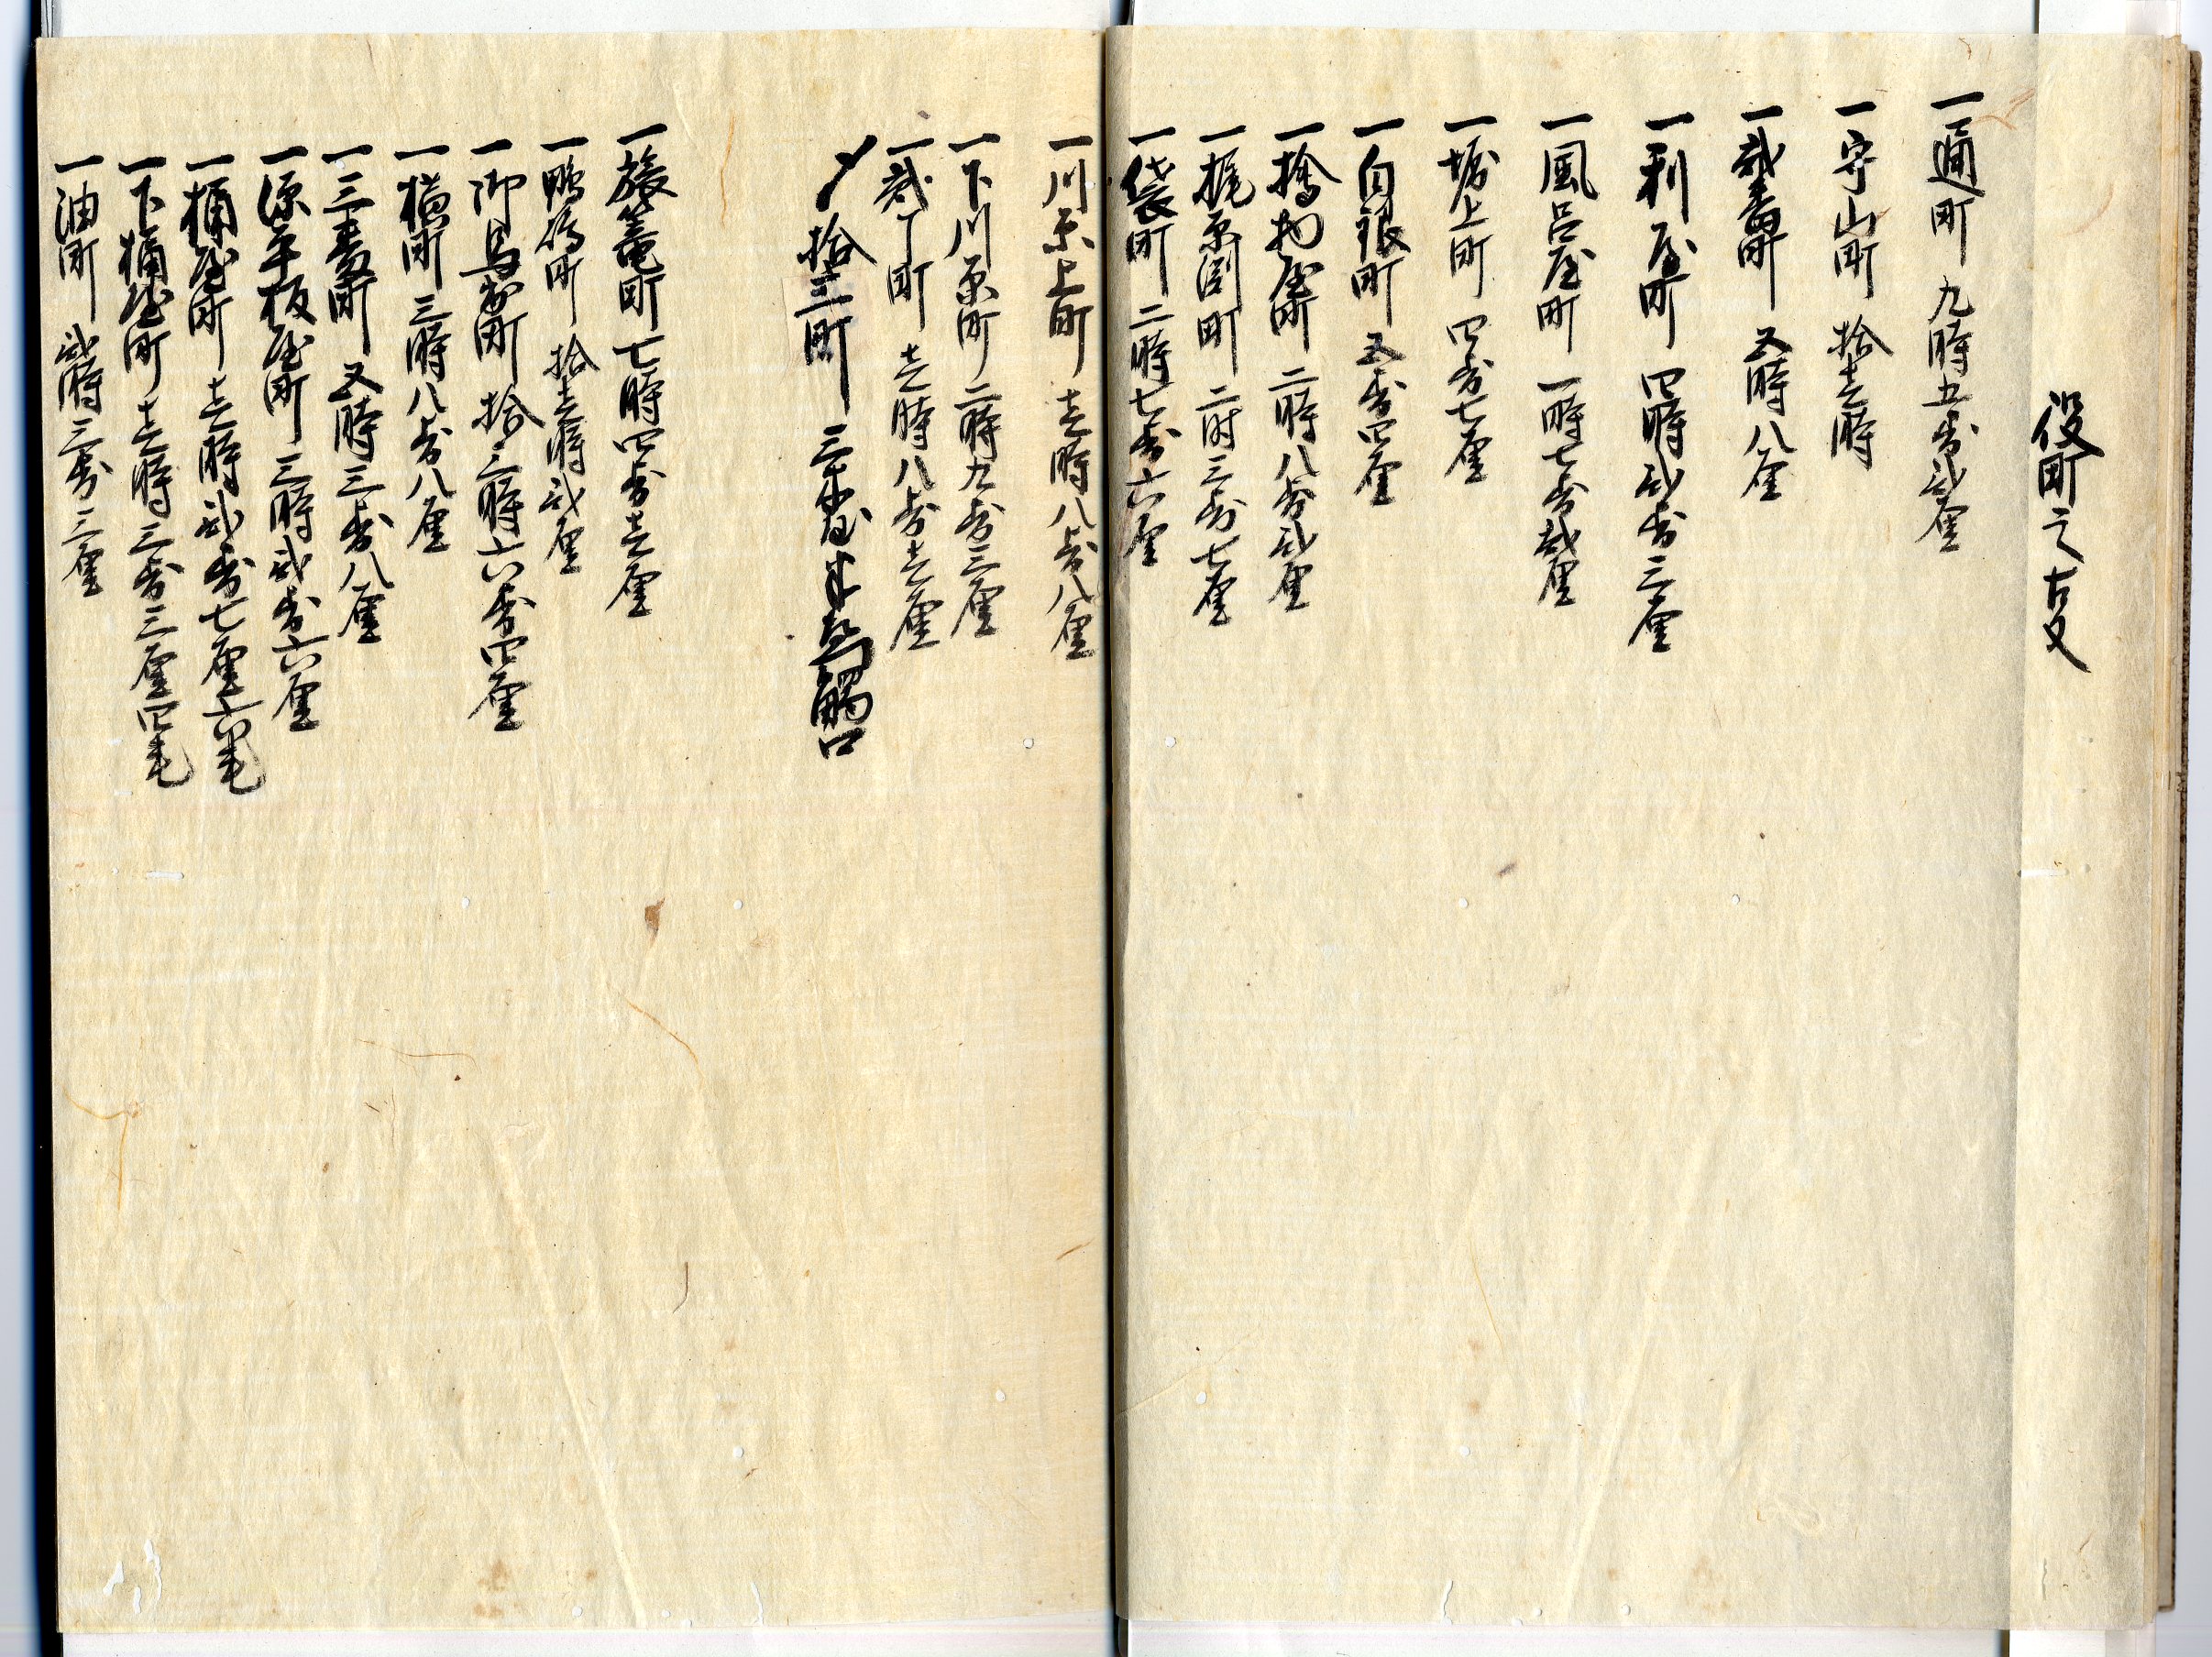 役町之古文
一通町 九時五歩弐厘
一守山町 拾壱時
一弐番町 五時八厘
一利屋町 四時弐歩三厘
一風呂屋町 一時七歩弐厘
一堀上町 四歩七厘
一白銀町 五歩四厘
一檜物屋町 二時八歩弐厘
一梶原関町 二時三歩七厘
一袋町 二時七歩六厘
一川原上町 壱時八歩八厘
一下川原町 二時九歩三厘
一弐丁町 壱時八歩壱厘
〆拾三町 三 触口
一旅篭町 七時四歩壱厘
一鴨嶋町 拾壱時弐厘
一御馬出町 拾三時六歩四厘
一横町 三時八歩八厘
一三番町 五時三歩八厘
一源平板屋町 三時弐歩六厘
一桶屋町 壱時弐歩七厘六毛
一下桶屋町 壱時三歩三厘四毛
一油町 弐時三歩三厘